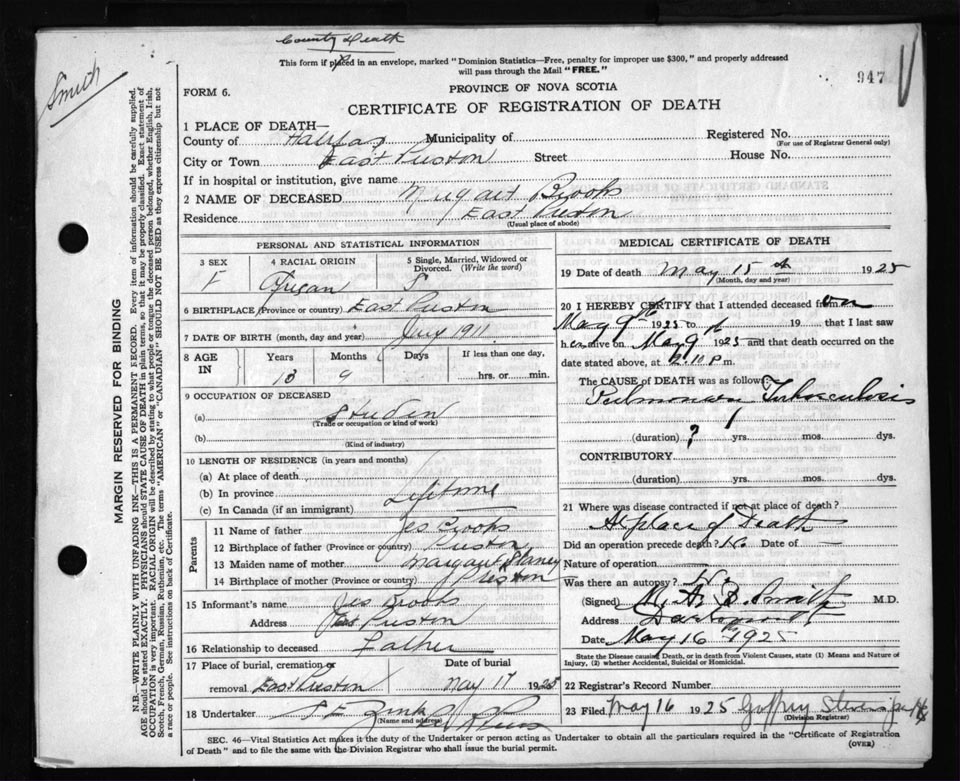 County Death
This form if placed in an envelope, marked "Dominion Statistics—Free, penalty for improper use $300," and properly addressed
will pass through the Mail "FREE."
947
Smith
PROVINCE OF NOVA SCOTIA
FORM 6.
CERTIFICATE OF REGISTRATION OF DEATH
MARGIN RESERVED FOR BINDING
N.B.—WRITE PLAINLY WITH UNFADING INK—THIS IS A PERMANENT RECORD. Every item of information should be carefully supplied.
AGE should be stated EXACTLY. PHYSICIANS should STATE CAUSE OF DEATH in plain terms, so that it may be properly classified. Exact statement of
OCCUPATION is very important. RACIAL ORIGIN will be described by stating to what people or tongue the deceased person belonged, whether English, Irish,
Scotch, French, German, Russian, Ruthenian, etc. The terms "AMERICAN" or "CANADIAN" SHOULD NOT BE USED as they express citizenship but not
a race or people. See instructions on back of Certificate.
1 PLACE OF DEATH—
County of Halifax Municipality of Registered No.
(For use of Registrar General only)
City or Town East Preston Street House No.
If in hospital or institution, give name
2 NAME OF DECEASED Brooks
Residence East Preston
(Usual place of abode)
PERSONAL AND STATISTICAL INFORMATION
3 SEX
F
4 RACIAL ORIGIN
African
5 Single, Married, Widowed or
Divorced. (Write the word)
S
6 BIRTHPLACE (Province or country) East Preston
7 DATE OF BIRTH (month, day and year) 1911
8 AGE IN
Years Months Days If less than one day,
13 9 hrs. or min.
9 OCCUPATION OF DECEASED
(a) Studen
(Trade or occupation or kind of work)
(b)
(Kind of industry)
10 LENGTH OF RESIDENCE (in years and months)
(a) At place of death
(b) In province Lifetime
(c) In Canada (if an immigrant)
Parents
11 Name of father Jas Brooks
12 Birthplace of father (Province or country) Preston
13 Maiden name of mother Margaret Slaney
14 Birthplace of mother (Province or country) Preston
15 Informant's name Jas Brooks
Address East Preston
16 Relationship to deceased Father
17 Place of burial, cremation or Date of burial
removal East Preston May 17 1925
18 Undertaker S E Zink
(Name and address)
MEDICAL CERTIFICATE OF DEATH
19 Date of death May 15th 1925
(Month, day and year)
20 I HEREBY CERTIFY that I attended deceased from on
May 9th 1925 to 19 that I last saw
her alive on May 9th 1925 and that death occurred on the
date stated above, at 2.10 P m.
The CAUSE of DEATH was as follows:
Pulmonary Tuberculosis
(duration) ? yrs. mos. dys.
CONTRIBUTORY
(duration) yrs. mos. dys.
21 Where was disease contracted if not at place of death?
At place of Death
Did an operation precede death? No Date of —
Nature of operation
Was there an autopsy? No
(Signed) Smith M.D.
Address Dartmouth
Date May 16th 1925
State the Disease causing Death, or in death from Violent Causes, state (1) Means and Nature of
Injury, (2) whether Accidental, Suicidal or Homicidal.
22 Registrar's Record Number
23 Filed May 16 1925
(Division Registrar)
SEC. 46—Vital Statistics Act makes it the duty of the Undertaker or person acting as Undertaker to obtain all the particulars required in the "Certificate of Registration
of Death" and to file the same with the Division Registrar who shall issue the burial permit. (OVER)